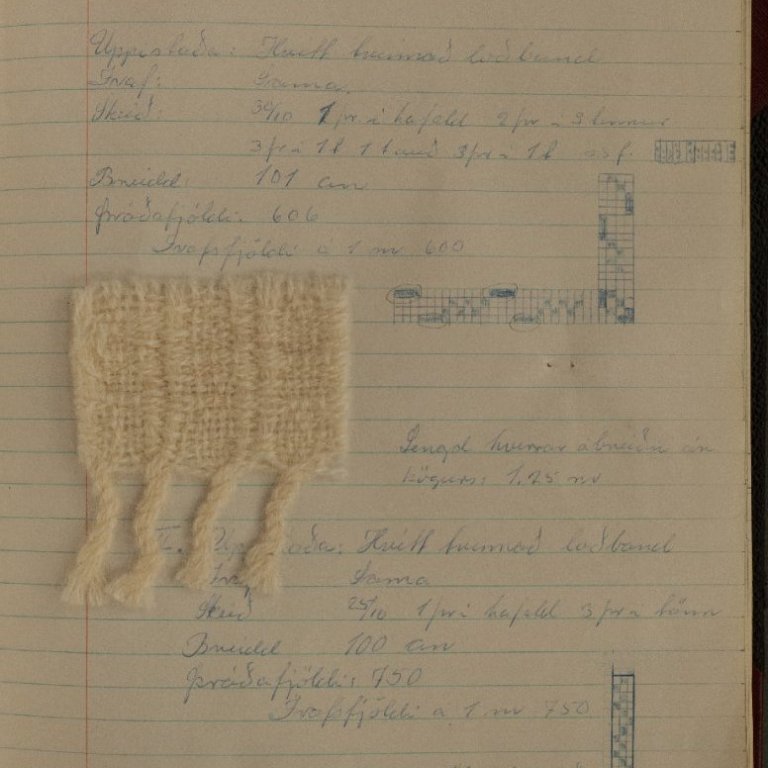 Uppistaða: Hvítt tvinnað loðband
Ívaf: Sama.
Skeið: 30/10 1 þr í hafald 2 þr í 3 tennur
3 þr í 1 t 1 t auð 3 þr í 1 t
Breidd: 101 cm
Þráðafjöldi: 606
Ívafsfjöldi á 1 m 600
Lengd hverrar ábreiðu án
kögurs: 1.25 m
Uppistaða: Hvítt tvinnað loðband
Sama
Skeið 25/10 1 þr í hafald 3 þr í tönn
Breidd 100 cm
Þráðafjöldi: 750
Ívafsfjöldi á 1 m 750